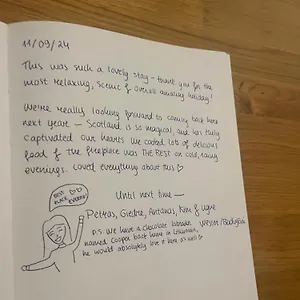 11/09/24
This was such a lovely stay – thank you for the
most relaxing, scenic & overall amazing holiday!
We're really looking forward to coming back here
next year – Scotland is so magical, and has truly
captivated our hearts. We cooked lots of delicious
food & the fireplace was THE BEST on cold, rainy
evenings. Loved everything about this ♡
BEST
PLACE EVERRR!
Until next time —
Petras, Giedre, Antanas, Kim & Ugne
p.s. we have a chocolate labrador
named Cooper back home in Lithuania,
he would absolutely love it here as well ♡